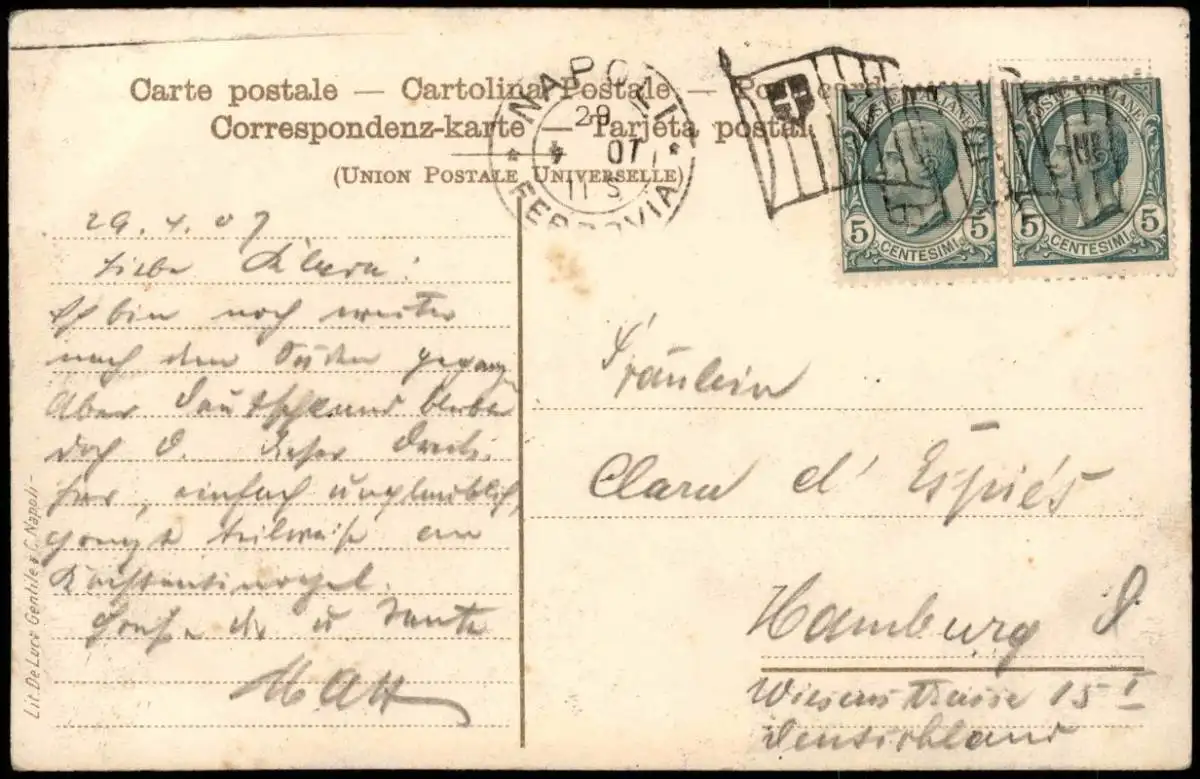 Carte postale — Cartolina Postale — Postcard
Correspondenz-karte — Tarjeta postal
(Union Postale Universelle)
NAPOLI
29
4 07
11 S
FERROVIA
POSTE ITALIANE
5 CENTESIMI 5
POSTE ITALIANE
5 CENTESIMI 5
29.4.07
Liebe Clara!
Ich bin noch weiter
nach dem Süden
Aber Deutschland bleibt
doch D. Dieser
einfach unglaublich,
teilweise an
Konstantinopel.
Gruß an die u. Tante
Fräulein
Clara d'Espiés
Hamburg
Wiesenstrasse 15 I
Deutschland
Lit. De Luca Gentile & C. Napoli-